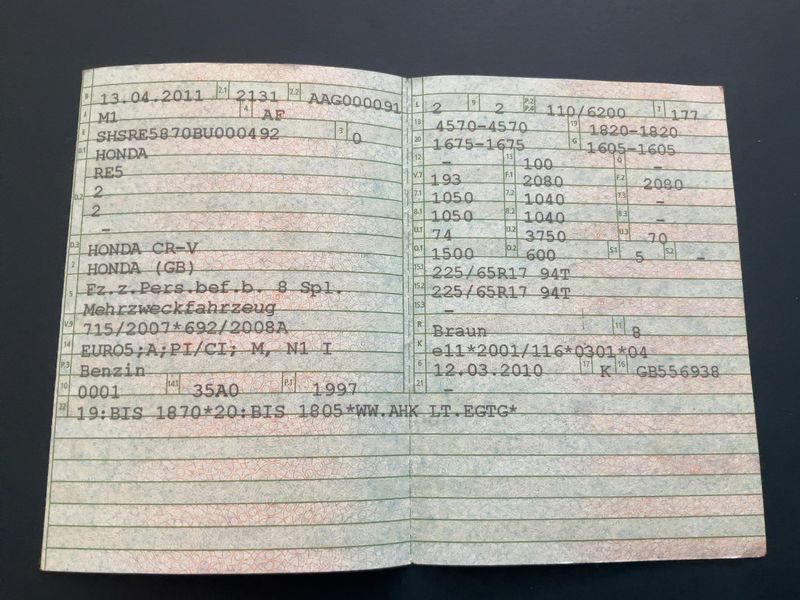 B 13.04.2011 2.1 2131 2.2 AAG000091
J M1 4 AF
E SHSRE5870BU000492 3 0
D.1 HONDA
RE5
D.2 2
2
-
D.3 HONDA CR-V
2 HONDA (GB)
5 Fz.z.Pers.bef.b. 8 Spl.
Mehrzweckfahrzeug
V.9 715/2007*692/2008A
14 EURO5;A;PI/CI; M, N1 I
P.3 Benzin
10 0001 14.1 35A0 P.1 1997
22 19:BIS 1870*20:BIS 1805*WW.AHK LT.EGTG*
L 2 9 2 P.2 P.4 110/6200 T 177
18 4570-4570 19 1820-1820
20 1675-1675 G 1605-1605
12 - 13 100 Q -
V.7 193 F.1 2080 F.2 2080
7.1 1050 7.2 1040 7.3 -
8.1 1050 8.2 1040 8.3 -
U.1 74 U.2 3750 U.3 70
O.1 1500 O.2 600 S.1 5 S.2 -
15.1 225/65R17 94T
15.2 225/65R17 94T
15.3 -
R Braun 11 8
K e11*2001/116*0301*04
6 12.03.2010 17 K 16 GB556938
21 -